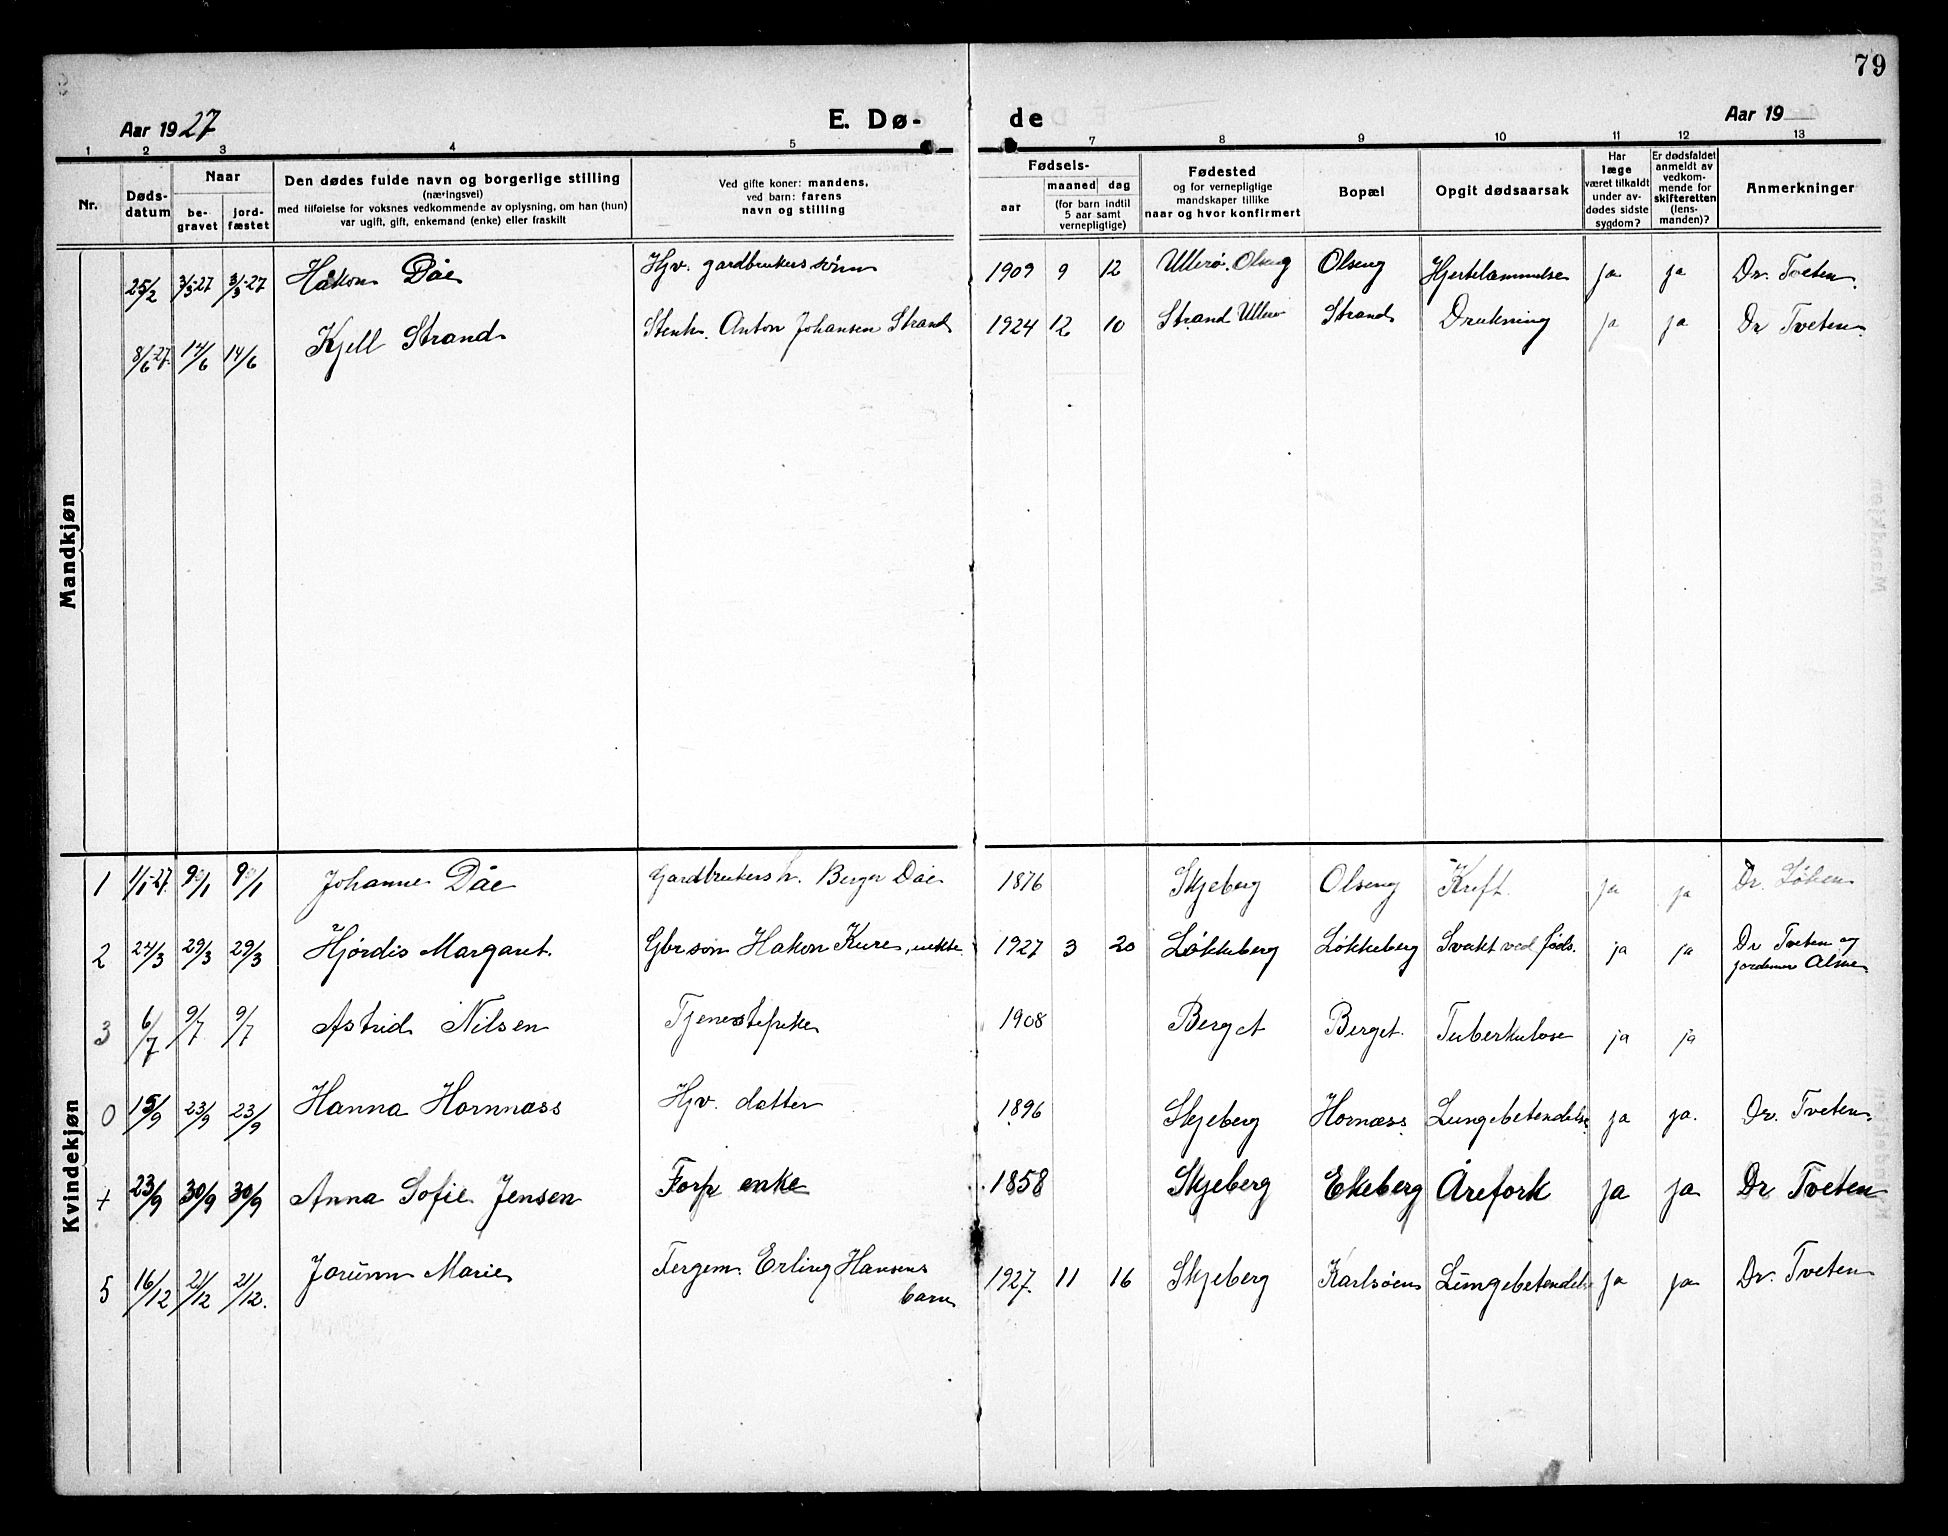 79
Aar 1927
E. Dø-
de
Aar 19
1 2 3 4 5 7 8 9 10 11 12 13
Nr.
Døds-
datum
Naar
be-
gravet
jord-
fæstet
Den dødes fulde navn og borgerlige stilling
(næringsvei)
med tilføielse for voksnes vedkommende av oplysning, om han (hun)
var ugift, gift, enkemand (enke) eller fraskilt
Ved gifte koner: mandens,
ved barn: farens
navn og stilling
Fødsels-
aar
maaned
dag
(for barn indtil
5 aar samt
vernepligtige)
Fødested
og for vernepligtige
mandskaper tillike
naar og hvor konfirmert
Bopæl
Opgit dødsaarsak
Har
læge
været tilkaldt
under av-
dødes sidste
sygdom?
Er dødsfaldet
anmeldt av
vedkom-
mende for
skifteretten
(lens-
manden)?
Anmerkninger
Mandkjøn
25/2 3/3-27 3/3-27 Håkon Dåe Hjv. gardbrukers sønn 1909 9 12 Ullerø. Olseng Olseng Hjertelammelse ja ja Dr. Tveten.
8/6 27. 14/6 14/6 Kjell Strand Stenh. Anton Johansen Strand 1924 12 10 Strand Ullerø Strand Drukning ja ja Dr Tveten.
Kvindekjøn
1 1/1-27. 9/1 9/1 Johanne Dåe Gardbrukers h. Berger Dåe 1876 Skjeberg Olseng Kreft. ja ja Dr. Løken
2 24/3 29/3 29/3 Hjørdis Margaret. Gbr søn Hakon Kure, 1927 3 20 Løkkeberg Løkkeberg Svakt ved føds. ja ja Dr Tveten og
jordemor Alme
3 6/7 9/7 9/7 Astrid Nilsen Tjenestepike 1908 Berget Berget. Tuberkulose ja ja
0 15/9 23/9 23/9 Hanna Hornnæss Hjv. datter 1896 Skjeberg Hornæss Lungebetendelse ja ja. Dr. Tveten.
+ 23/9 30/9 30/9 Anna Sofie Jensen Forp enke 1858 Skjeberg Ekeberg Årefork ja ja Dr. Tveten
5 16/12 21/12 21/12. Jorunn Marie Fergem. Erling Hansens
barn 1927. 11 16 Skjeberg Karlsøen Lungebetendelse ja ja Dr. Tveten